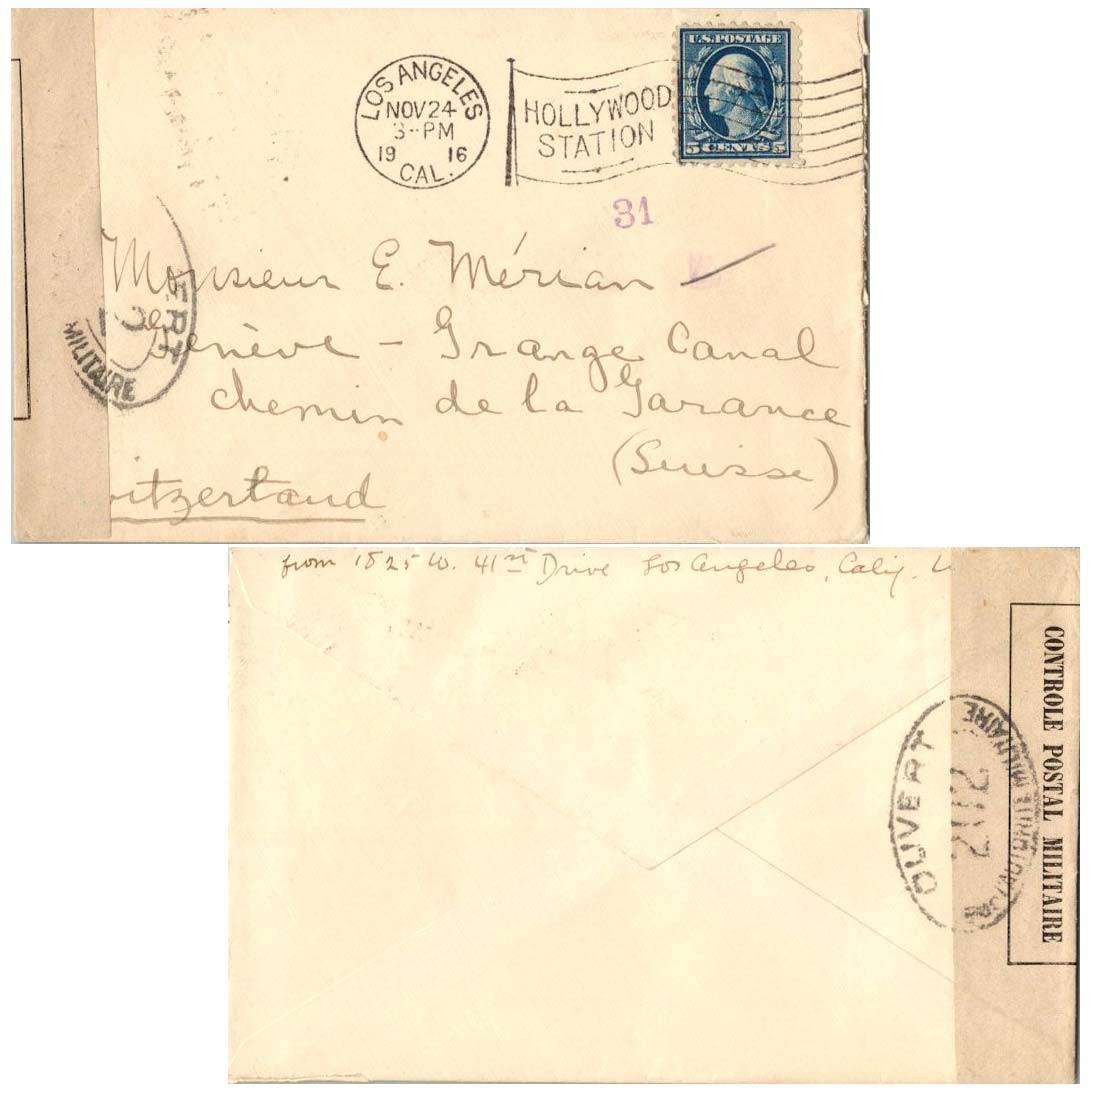 LOS ANGELES
NOV 24
3-PM
19 16
CAL.
HOLLYWOOD
STATION
U.S. POSTAGE
5 CENTS 5
31
Monsieur E. Mérian
Genève - Grange Canal
chemin de la Garance
(Suisse)
witzerland
ERT
MILITAIRE
from 1825 W. 41st Drive Los Angeles, Calif. U
CONTROLE POSTAL MILITAIRE
OUVERT
MILITAIRE